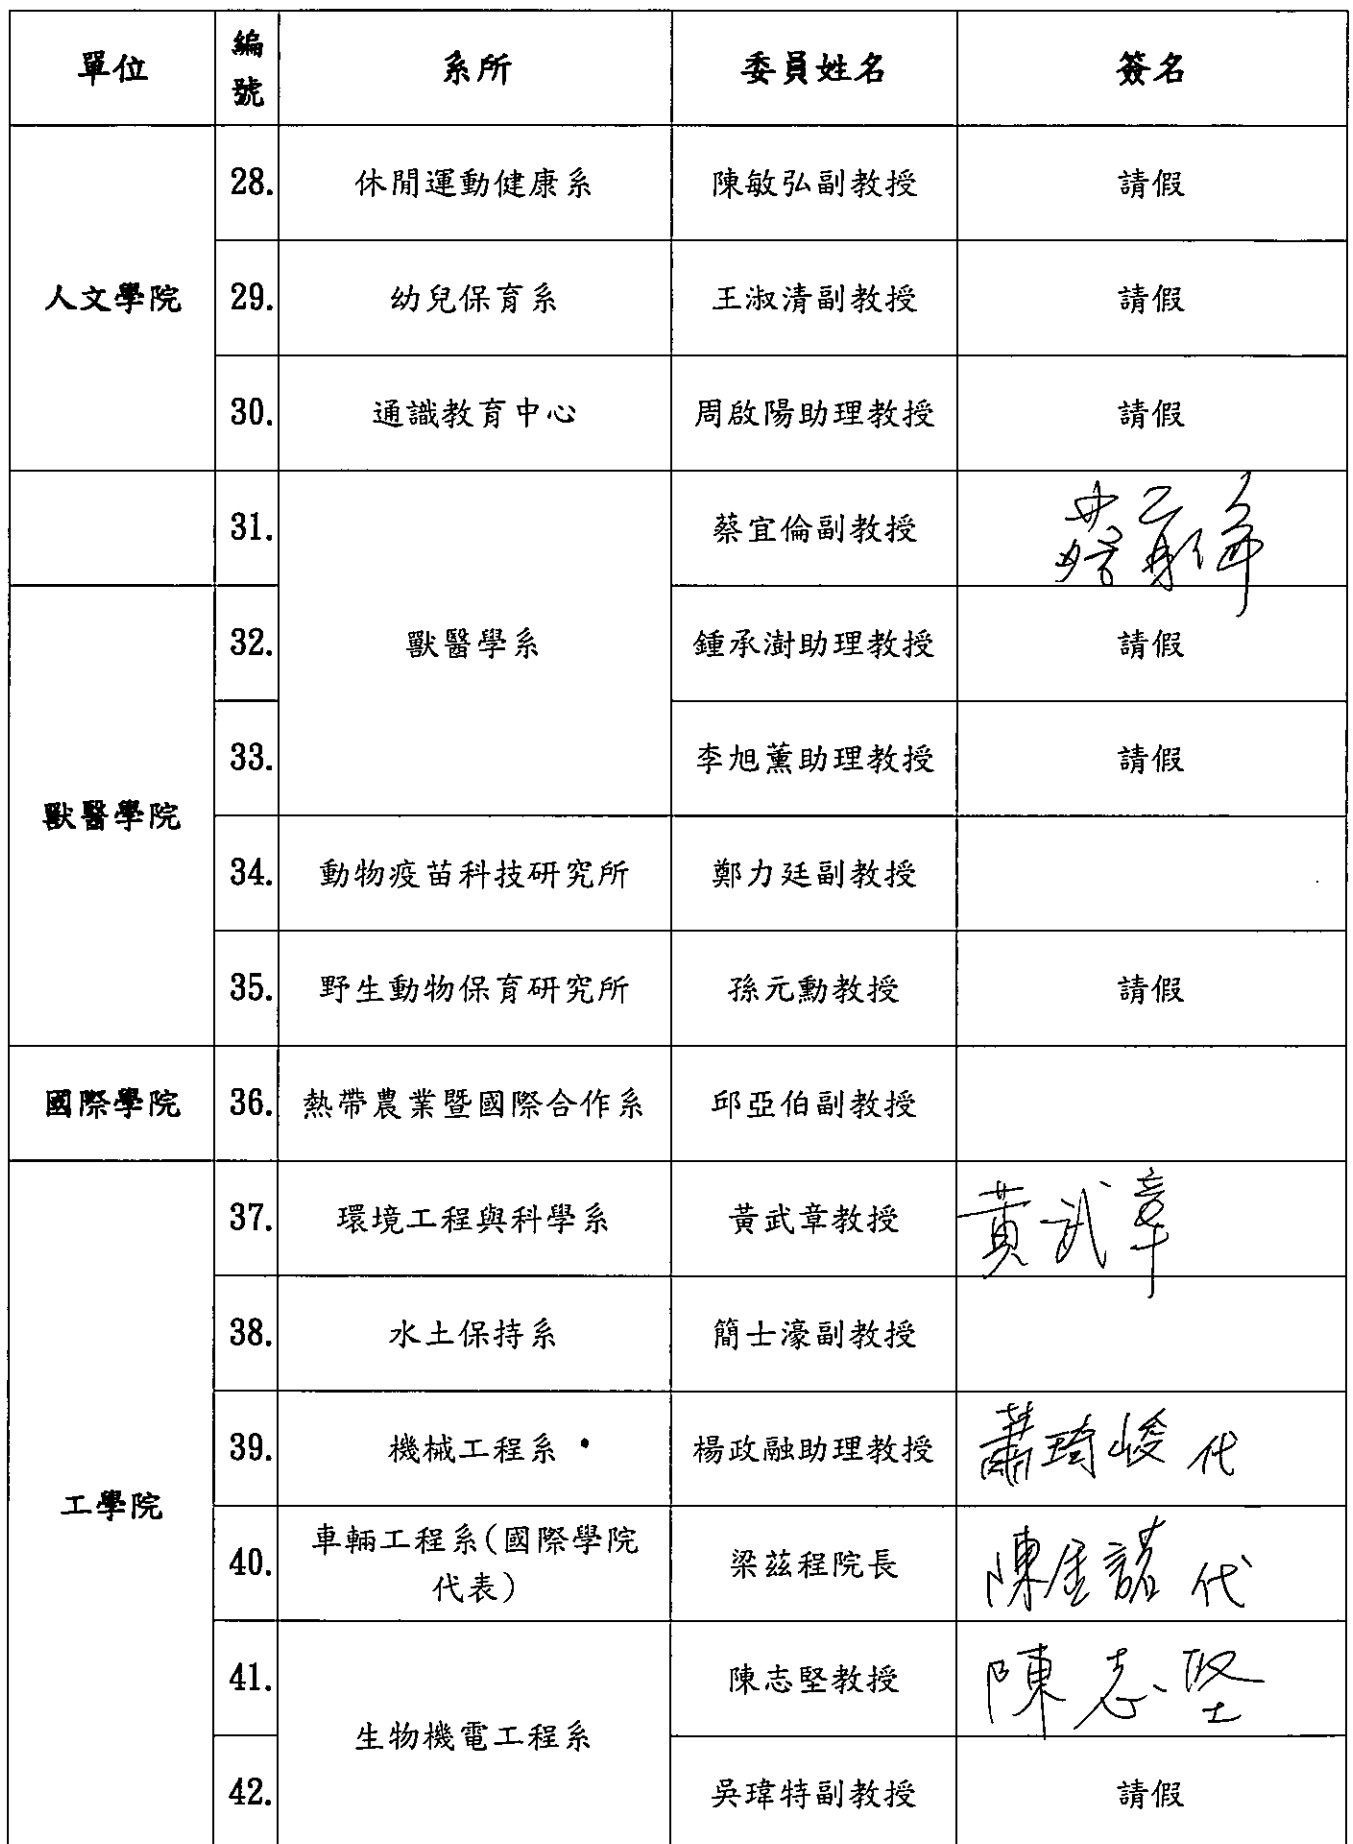 單位 編號 系所 委員姓名 簽名
人文學院
28. 休閒運動健康系 陳敏弘副教授 請假
29. 幼兒保育系 王淑清副教授 請假
30. 通識教育中心 周啟陽助理教授 請假
獸醫學院
獸醫學系
31. 蔡宜倫副教授 蔡宜倫
32. 鍾承澍助理教授 請假
33. 李旭薰助理教授 請假
34. 動物疫苗科技研究所 鄭力廷副教授
35. 野生動物保育研究所 孫元勳教授 請假
國際學院 36. 熱帶農業暨國際合作系 邱亞伯副教授
工學院
37. 環境工程與科學系 黃武章教授 黃武章
38. 水土保持系 簡士濠副教授
39. 機械工程系 楊政融助理教授 蕭琦峻 代
40. 車輛工程系(國際學院
代表) 梁茲程院長 陳金諾 代
生物機電工程系
41. 陳志堅教授 陳志堅
42. 吳瑋特副教授 請假